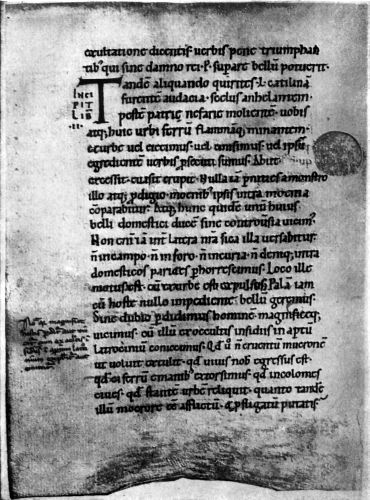 exultatione dicentis verbis pene triumphan
tib; qui sine damno rei p. supare bellū potuerit.
INCI
PIT
LIB
.II.
Tandē aliquando quirites. L. catilinā
furentē audacia. scelus anhelantem.
pestē patrię nefarie molientē. vobis
atq; huic urbi ferrū flammāq; minantem.
ex urbe vel eiecimus. vel emisimus. vel ipsū
egredientē verbis psecuti sumus. Abiit
excessit. evasit erupit. Nulla iā pnities a monstro
illo atq; pdigio. moenibus ipsis intra moenia
comparabitur. Atq; hunc quidē unū huius
belli domestici ducē sine controusia vicim;
Non enī iā int latera mea sica illa versabitur.
n̄ in campo. n̄ in foro. n̄ in curia. n̄ deniq; intra
domesticos parietes phorrescimus. Loco ille
motus est. cū ex urbe est expulsus. Palā iam
cū hoste nullo impediente bellū geremus.
Sine dubio pdidimus hominē. magnificeq;
vicimus. cū illū ex occultis insidiis in aptū
latrociniū coniecimus. Qd v̄ n̄ cruentū mucronē
ut voluit extulit. qd vivis nob egressus est.
qd ei ferrū e manib; extorsimus. qd incolomes
cives. qd stantē urbē reliquit. quanto tandē
illū merore ēe afflictū. & pfligatū putatis.